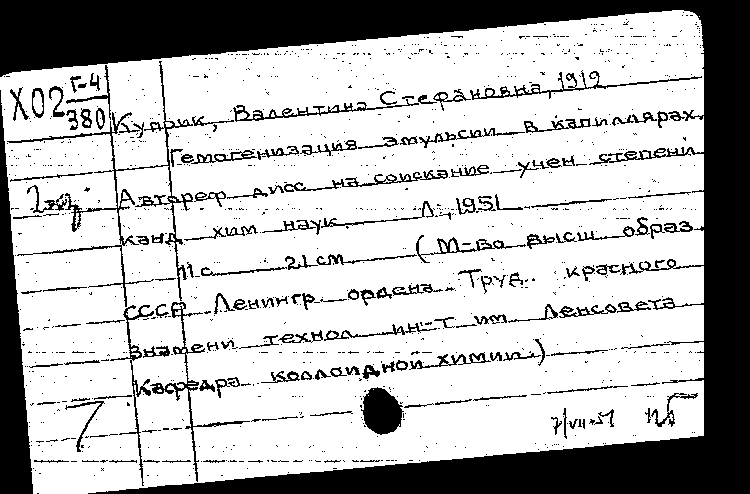 Х02 Г-4
380
Куприк, Валентина Стефановна, 1912
Гемогенизация эмульсии в капиллярах.
2 экз. Автореф дисс на соискание учен степени
канд хим наук. Л., 1951
11 с 21 см (М-во высш образ.
СССР Ленингр ордена Труд. красного
знамени технол ин-т им Ленсовета
Кафедра коллоидной химии.)
7/VII-51